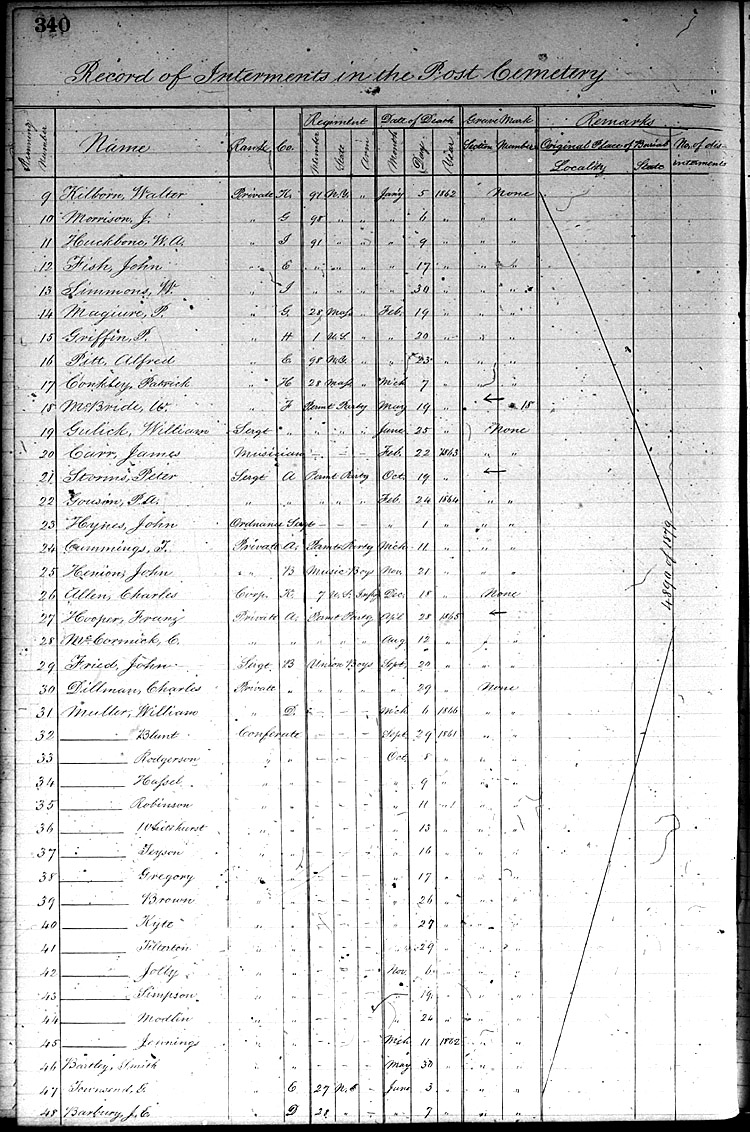 340
Record of Interments in the Post Cemetery
Running Number Name Rank Co. Regiment Number State Arm Date of Death Month Day Year Grave Mark Section Number Remarks Original Place of Burial Locality State No. of disinterments
9 Kilborn, Walter Private K. 91 N.Y. " Jany 5 1862 None
10 Morrison, J. " G 98 " " " 6 " " "
11 Huckbone, W. A. " I 91 " " " 9 " " "
12 Fish, John " E " " " " 17 " " "
13 Simmons, W. " I " " " " 30 " " "
14 Maguire, P. " G. 28 Mass " Feb. 19 " " "
15 Griffin, P. " H 1 U.S. " " 20 " " "
16 Pitt, Alfred " E. 98 N.Y. " " 23 " " "
17 Conkley, Patrick " H 28 Mass. " Mch 7 " " "
18 McBride, W. " F Permt Party May 19 " ← " 18
19 Gulick, William Sergt " " " " June 25 " None
20 Carr, James Musician - - - Feb. 22 1863 " "
21 Storms, Peter Sergt A Permt Party Oct. 19 " ←
22 P. A. " " " " " Feb. 24 1864 " "
23 Hynes, John Ordnance Sergt - - - " 1 " " "
24 Cummings, T. Private A. Permt Party Mch 11 " " "
25 Henion, John " B Music Boys Nov. 21 " " "
26 Allen, Charles Corp. K. 7 U.S. Infy Dec. 18 " None
27 Hooper, Franz Private A. Permt Party Apl 28 1865 ←
28 McCormick, C. " " " " " Aug 12 " " "
29 Fried, John Sergt B Union Boys Sept. 20 " " "
30 Dillman, Charles Private " " " " " 29 " None
31 Muller, William " D. - - Mch 6 1866 " "
32 Blunt Conferate - - - Sept 29 1861 " "
33 Rodgerson " " - - - Oct. 8 " " "
34 Hassel " " - - - " 9 " " "
35 Robinson " " - - - " 11 " " "
36 Whitehurst " " - - - " 13 " " "
37 Teyson " " - - - " 16 " " "
38 Gregory " " - - - " 17 " " "
39 Brown " " - - - " 26 " " "
40 Kyte " " - - - " 27 " " "
41 " " - - - " 29 " " "
42 Jolly " " - - - Nov. 6 " " "
43 Simpson " " - - - " 19 " " "
44 Modlin " " - - - " 24 " " "
45 Jennings " " - - - Mch 11 1862 " "
46 Bartley, Smith " " - - - May 30 " " "
47 Townsend, G. " C 27 N.C. - June 3 " " "
48 Barbury, J. C. " D 28 " - " 7 " " "
4890 of 1879